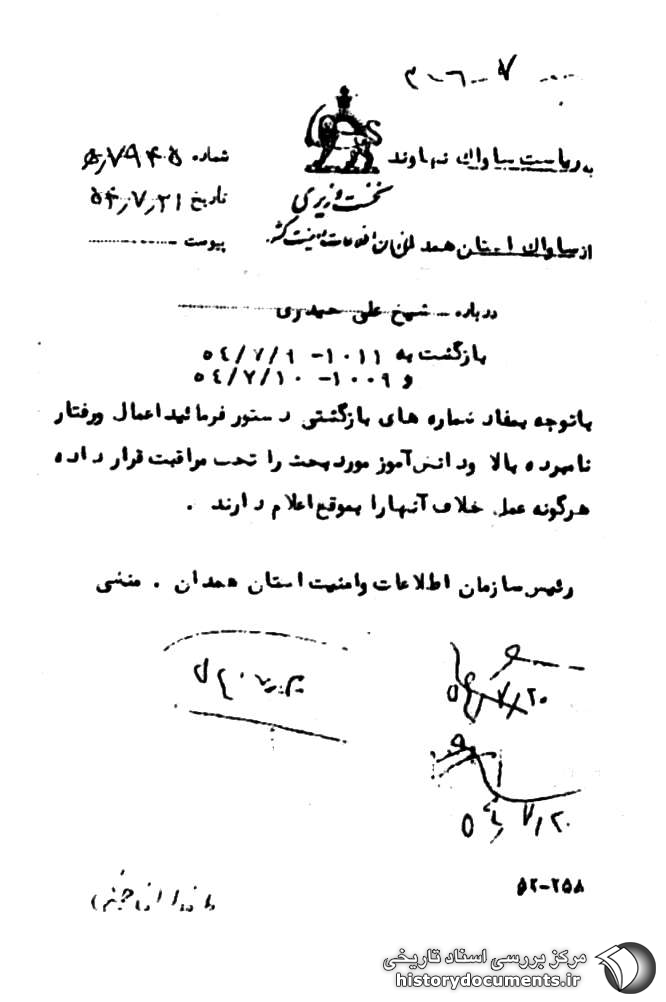 به ریاست ساواک نهاوند
شماره ۵٫۷۹۴۰۵
نخست وزیری
تاریخ ۵۴٫۷٫۲۱
از ساواک استان همدان سازمان اطلاعات و امنیت کشور
پیوست
درباره شیخ علی حیدری
بازگشت به ۱۰۱۱- ۵٤/۷/۹
و ۱۰۰۹- ۵٤/۷/۱۰
باتوجه بمفاد شماره های بازگشتی دستور فرمائید اعمال ورفتار
نامبرده بالا ودانش‌آموز مورد بحث را تحت مراقبت قرار داده
هرگونه عمل خلاف آنهارا بموقع اعلام دارند .
رئیس سازمان اطلاعات وامنیت استان همدان . منشی
۵۴/۷/۲۰
۵۴/۷/۲۰
۵۲-۲۵۸
مرکز بررسی اسناد تاریخی
historydocuments.ir